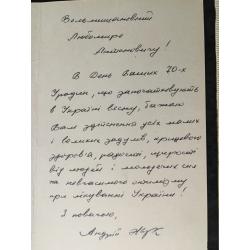 Вельмишановний
Любомире
Антонович!
В День Ваших 70-х
Уродин, що започатковують
в Україні весну, бажаю
Вам здійснення усіх малих
і великих задумів, кришевого
здоров'я, радості, щирості
від людей і молодечих сил
та невгасимого оптимізму
при лікуванні України!
З повагою,
Андрій